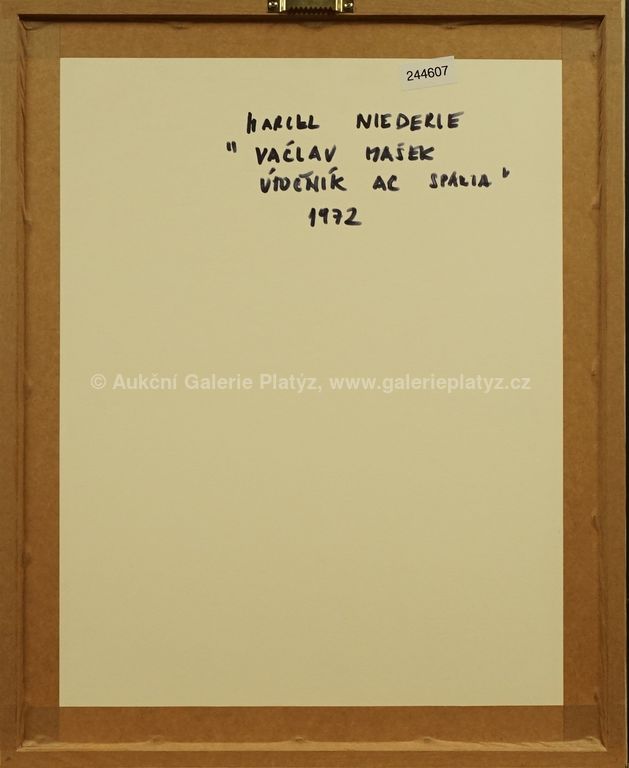 244607
MARCEL NIEDERLE
"VÁCLAV MAŠEK
ÚTOČNÍK AC SPARTA"
1972
© Aukční Galerie Platýz, www.galerieplatyz.cz